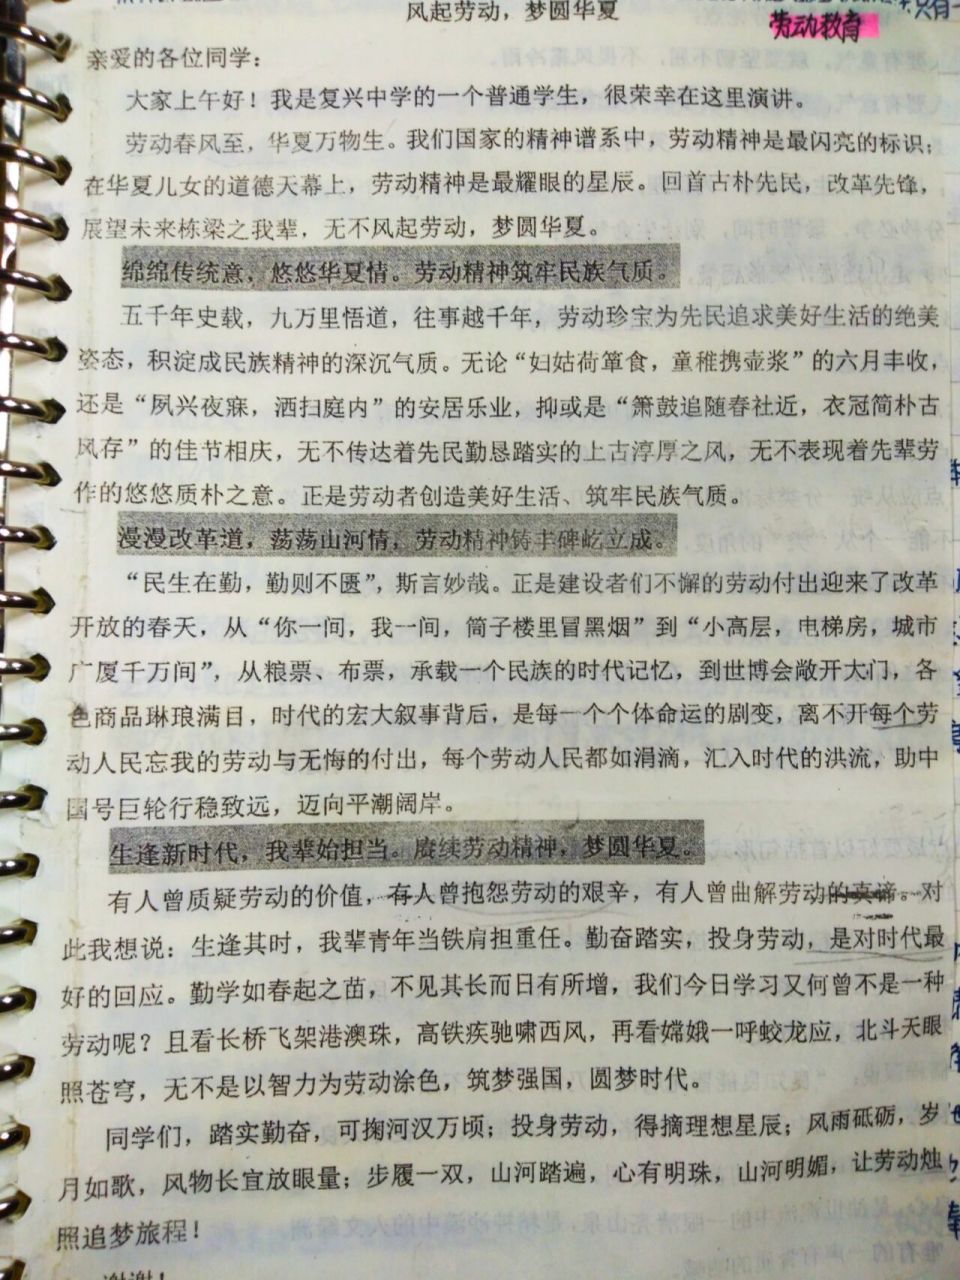 风起劳动，梦圆华夏
劳动教育
亲爱的各位同学：
大家上午好！我是复兴中学的一个普通学生，很荣幸在这里演讲。
劳动春风至，华夏万物生。我们国家的精神谱系中，劳动精神是最闪亮的标识；
在华夏儿女的道德天幕上，劳动精神是最耀眼的星辰。回首古朴先民，改革先锋，
展望未来栋梁之我辈，无不风起劳动，梦圆华夏。
绵绵传统意，悠悠华夏情。劳动精神筑牢民族气质。
五千年史载，九万里悟道，往事越千年，劳动珍宝为先民追求美好生活的绝美
姿态，积淀成民族精神的深沉气质。无论“妇姑荷箪食，童稚携壶浆”的六月丰收，
还是“夙兴夜寐，洒扫庭内”的安居乐业，抑或是“箫鼓追随春社近，衣冠简朴古
风存”的佳节相庆，无不传达着先民勤恳踏实的上古淳厚之风，无不表现着先辈劳
作的悠悠质朴之意。正是劳动者创造美好生活、筑牢民族气质。
漫漫改革道，荡荡山河情，劳动精神铸丰碑屹立成。
“民生在勤，勤则不匮”，斯言妙哉。正是建设者们不懈的劳动付出迎来了改革
开放的春天，从“你一间，我一间，筒子楼里冒黑烟”到“小高层，电梯房，城市
广厦千万间”，从粮票、布票，承载一个民族的时代记忆，到世博会敞开大门，各
色商品琳琅满目，时代的宏大叙事背后，是每一个个体命运的剧变，离不开每个劳
动人民忘我的劳动与无悔的付出，每个劳动人民都如涓滴，汇入时代的洪流，助中
国号巨轮行稳致远，迈向平潮阔岸。
生逢新时代，我辈始担当。赓续劳动精神，梦圆华夏。
有人曾质疑劳动的价值，有人曾抱怨劳动的艰辛，有人曾曲解劳动的真谛。对
此我想说：生逢其时，我辈青年当铁肩担重任。勤奋踏实，投身劳动，是对时代最
好的回应。勤学如春起之苗，不见其长而日有所增，我们今日学习又何曾不是一种
劳动呢？且看长桥飞架港澳珠，高铁疾驰啸西风，再看嫦娥一呼蛟龙应，北斗天眼
照苍穹，无不是以智力为劳动涂色，筑梦强国，圆梦时代。
同学们，踏实勤奋，可掬河汉万顷；投身劳动，得摘理想星辰；风雨砥砺，岁
月如歌，风物长宜放眼量；步履一双，山河踏遍，心有明珠，山河明媚，让劳动烛
照追梦旅程！
谢谢！